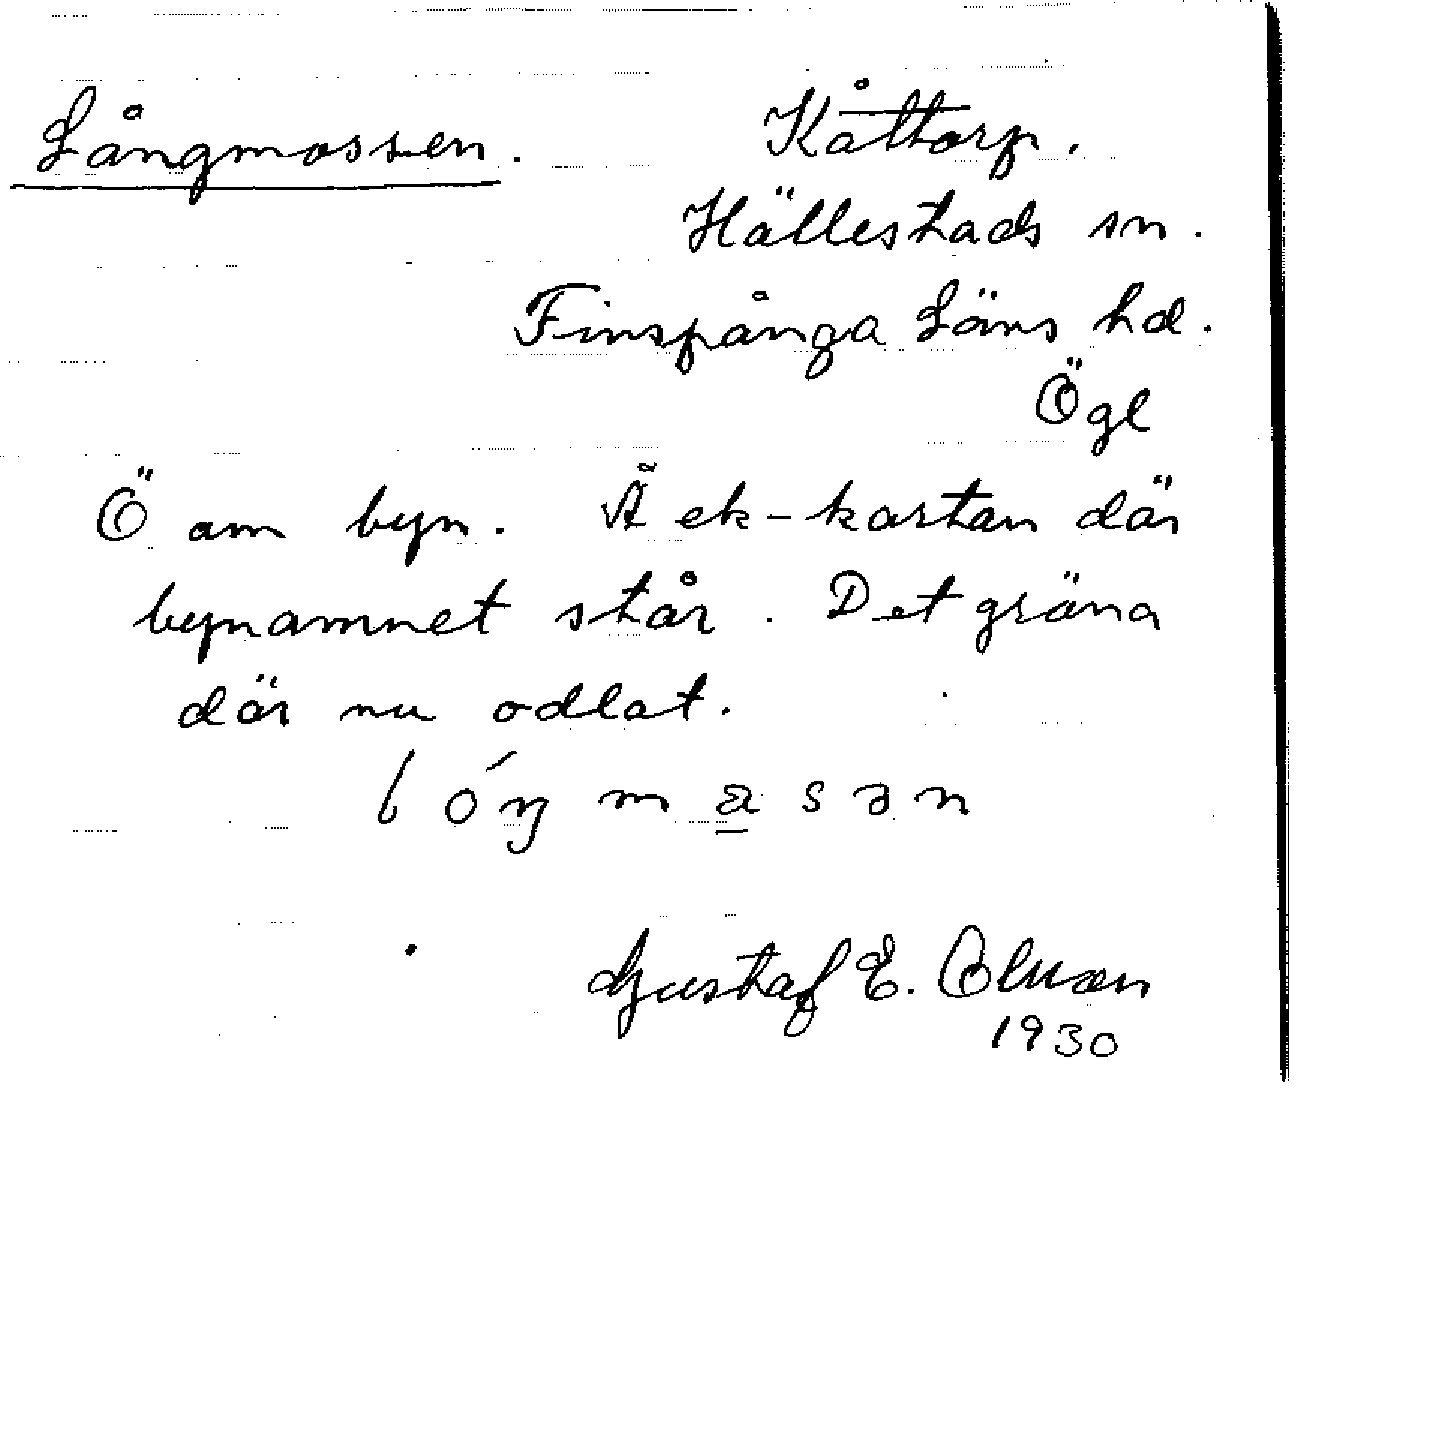 Långmossen.
Kåttorp.
Hällestads sn.
Finspånga Läns hd.
Ögl
Ö om byn. Å ek-kartan där
bynamnet står. Det gröna
där nu odlat.
Gustaf E.
1930